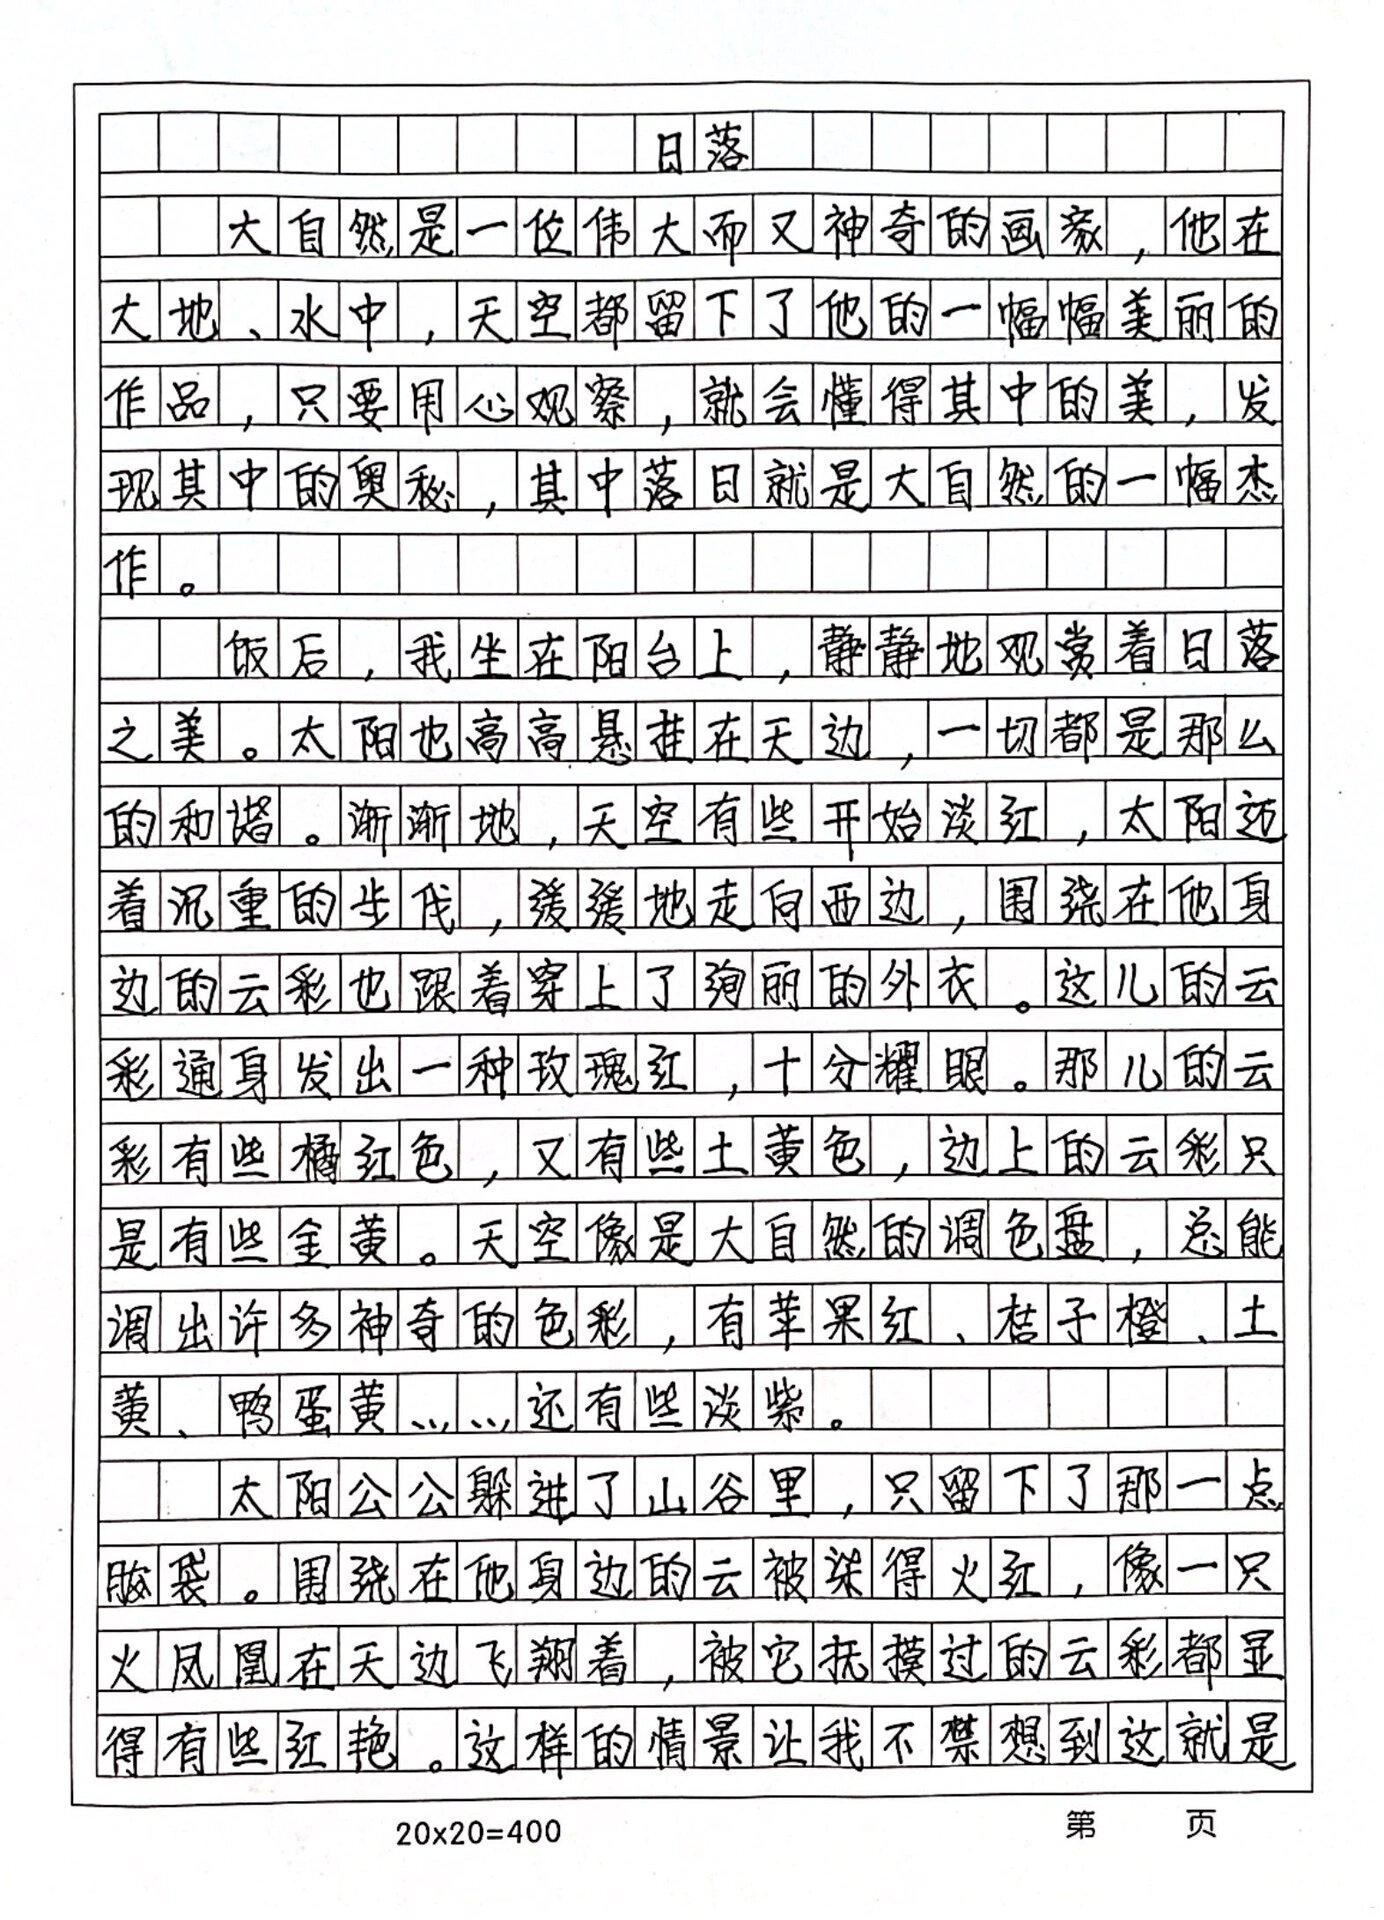 日落
大自然是一位伟大而又神奇的画家，他在
大地、水中，天空都留下了他的一幅幅美丽的
作品，只要用心观察，就会懂得其中的美，发
现其中的奥秘，其中落日就是大自然的一幅杰
作。
饭后，我坐在阳台上，静静地观赏着日落
之美。太阳也高高悬挂在天边，一切都是那么
的和谐。渐渐地，天空有些开始淡红，太阳迈
着沉重的步伐，缓缓地走向西边，围绕在他身
边的云彩也跟着穿上了绚丽的外衣。这儿的云
彩通身发出一种玫瑰红，十分耀眼。那儿的云
彩有些橘红色，又有些土黄色，边上的云彩只
是有些金黄。天空像是大自然的调色盘，总能
调出许多神奇的色彩，有苹果红、桔子橙、土
黄、鸭蛋黄……还有些淡紫。
太阳公公躲进了山谷里，只留下了那一点
脑袋。围绕在他身边的云被染得火红，像一只
火凤凰在天边飞翔着，被它抚摸过的云彩都显
得有些红艳。这样的情景让我不禁想到这就是
20x20=400 第 页